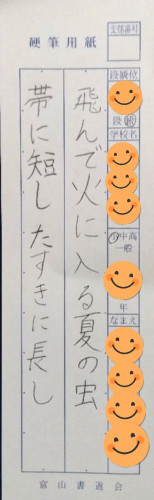 硬筆用紙
段級位
段級
学校名
小中高
一般
年
なまえ
飛んで火に入る夏の虫
帯に短したすきに長し
富山書道会